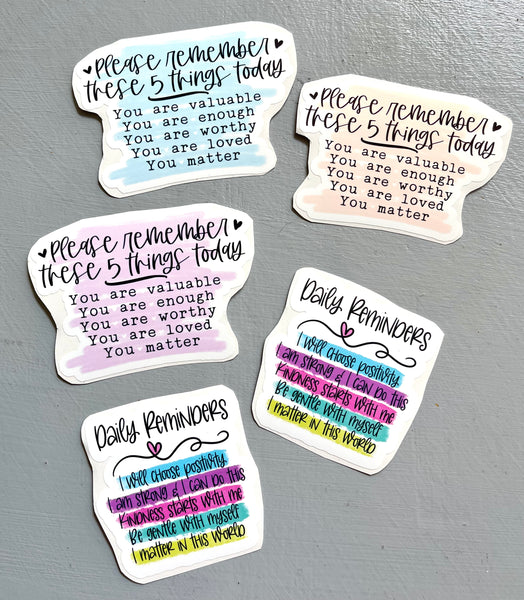 Please remember
these 5 things today
You are valuable
You are enough
You are worthy
You are loved
You matter
Please remember
these 5 things today
You are valuable
You are enough
You are worthy
You are loved
You matter
Please remember
these 5 things today
You are valuable
You are enough
You are worthy
You are loved
You matter
Daily Reminders
I will choose positivity
I am strong & I can do this
Kindness starts with me
Be gentle with myself
I matter in this world
Daily Reminders
I will choose positivity
I am strong & I can do this
Kindness starts with me
Be gentle with myself
I matter in this world